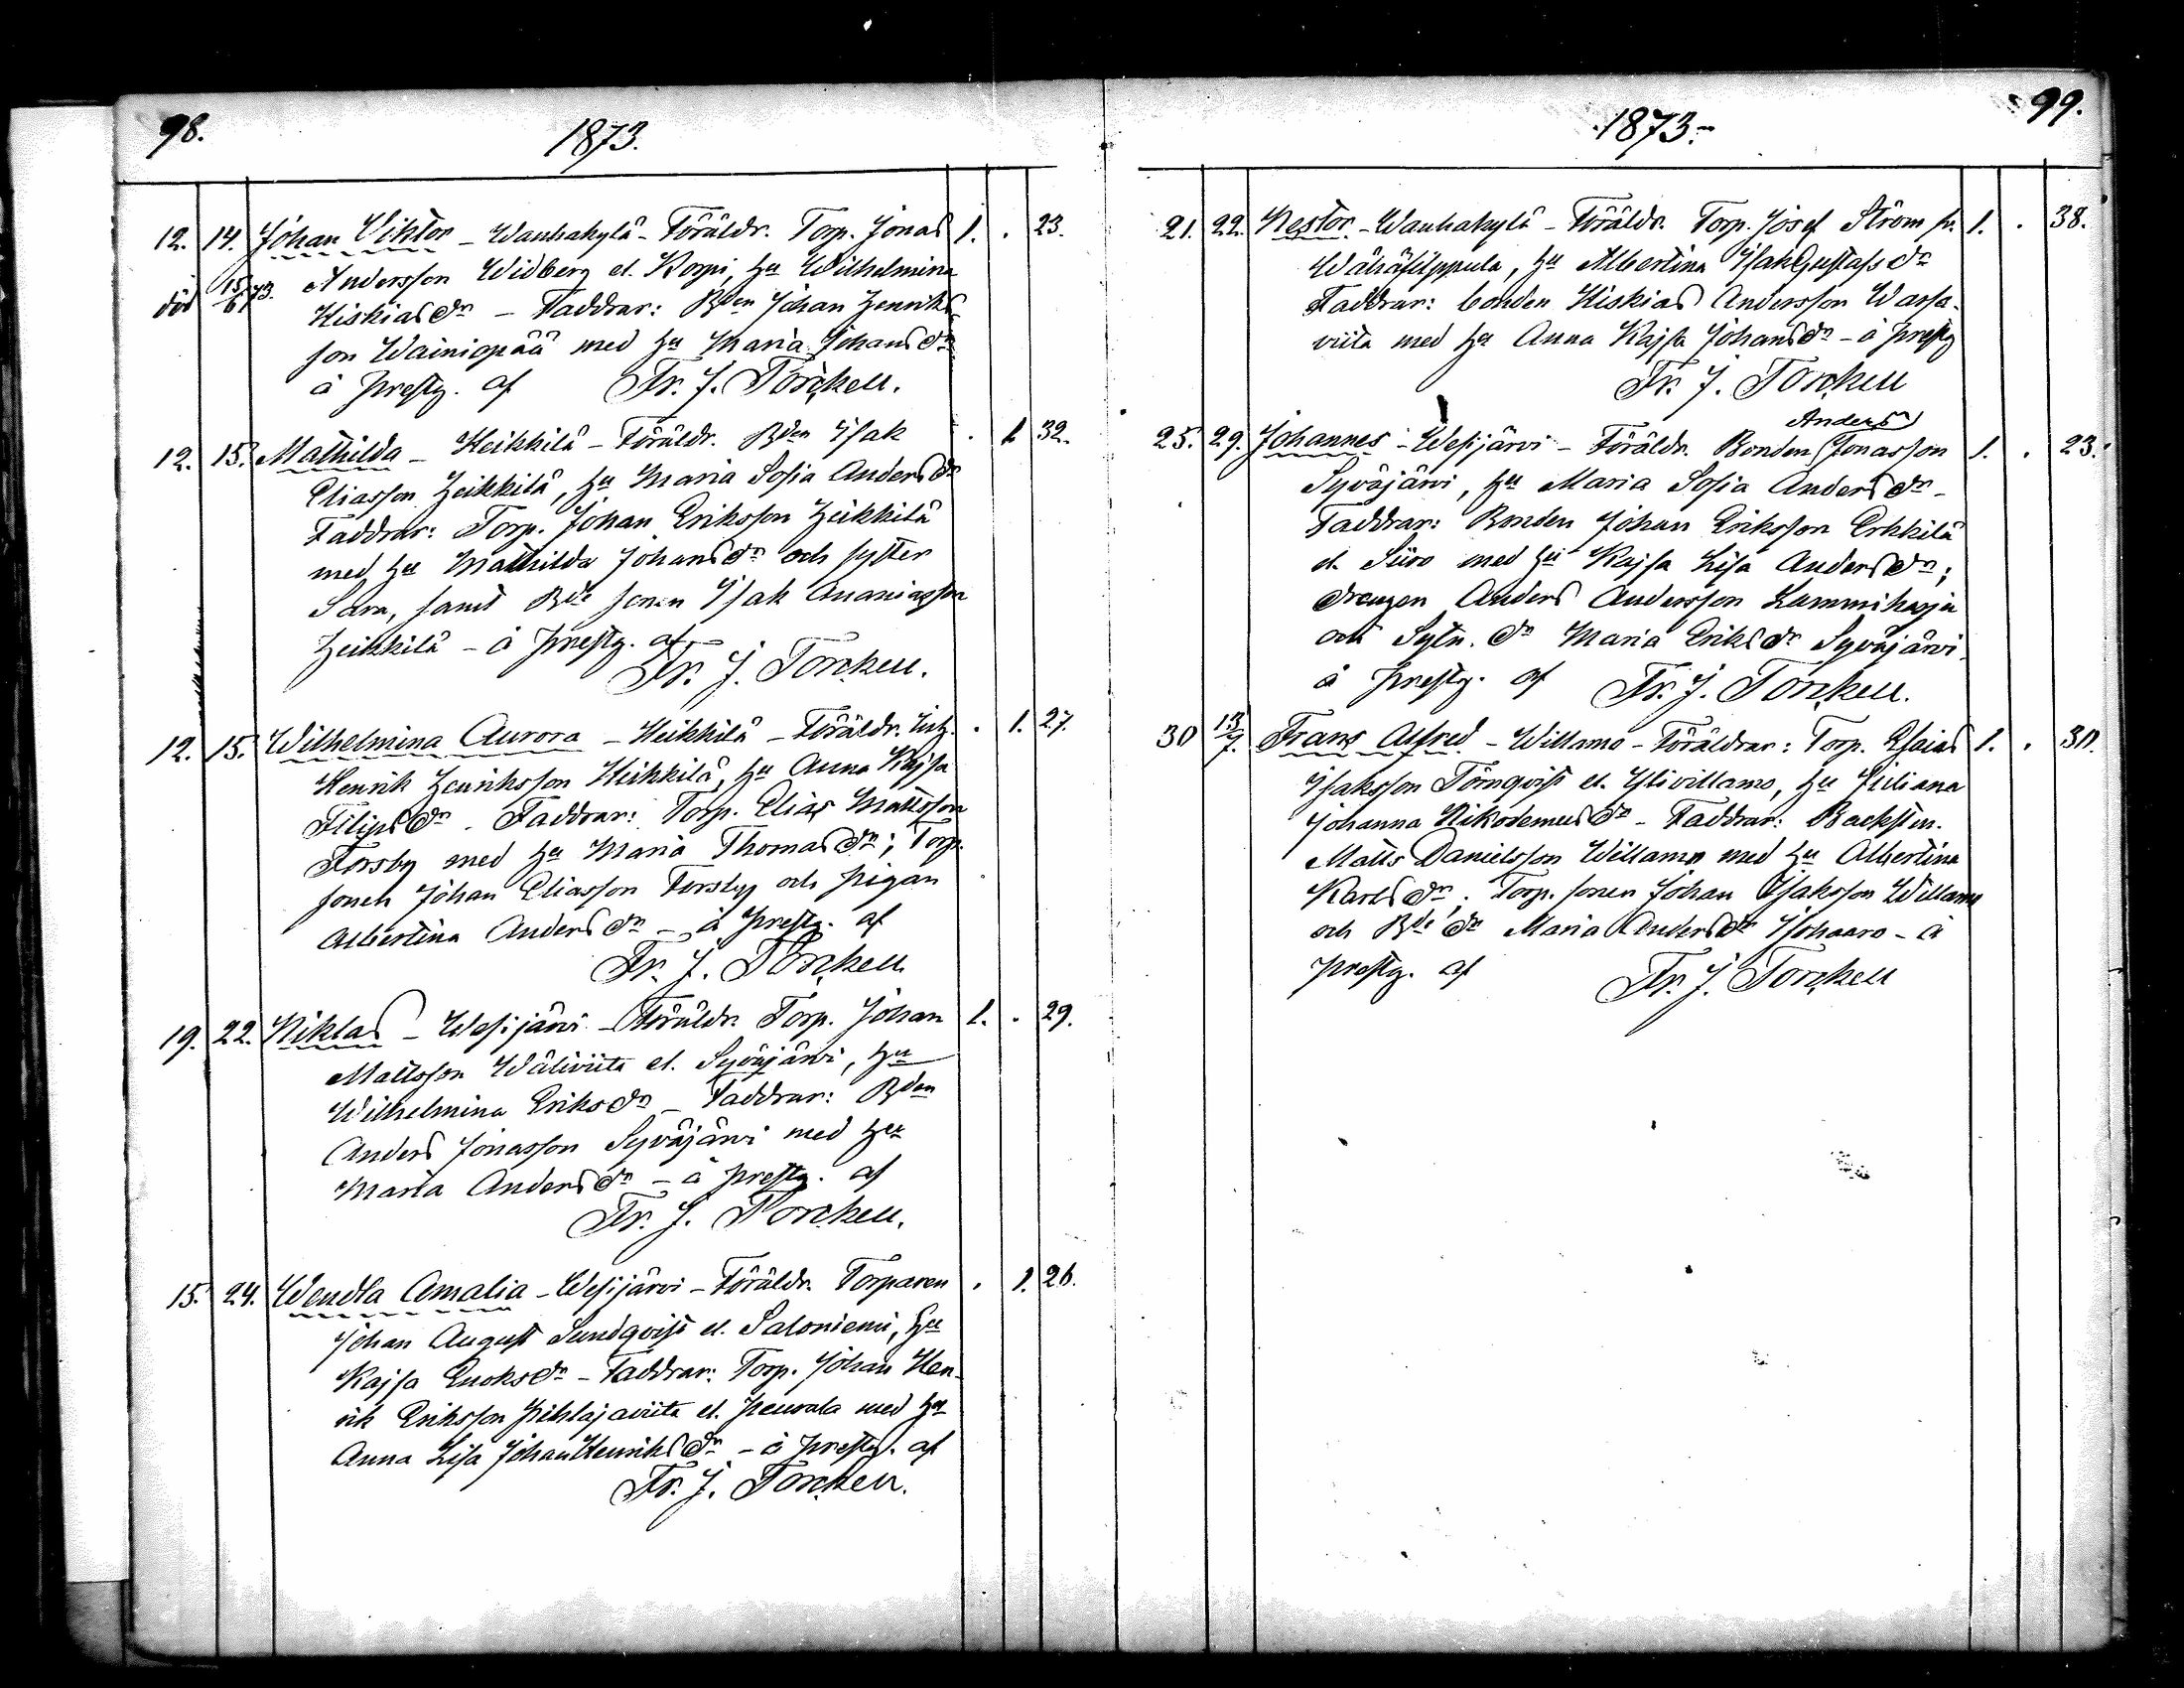 98.
1873.
12. 14. Johan Viktor - Wanhakylä - Föräldr. Torp. Jonas 1. . 23.
död 15/6 73. Andersson Widberg el. Korpi, hu Wilhelmina
Kiskias dr - Faddrar: Bden Johan Henriks
son Wainiopää med hu Maria Johans dr
å prestg. af Fr. J. Torckell.
12. 15. Mathilda - Heikkilä - Föräldr. Bden Isak . 1 32.
Eliasson Heikkilä, hu Maria Sofia Anders dr
Faddrar: Torp. Johan Eriksson Heikkilä
med hu Mathilda Johans dr och syster
Sara, samt Bde sonen Isak Ananiasson
Heikkilä - å prestg. af
Fr. J. Torckell.
12. 15. Wilhelmina Aurora - Heikkilä - Föräldr. Inh. . 1. 27.
Henrik Henriksson Heikkilä, hu Anna Kajsa
Filips dr. Faddrar: Torp. Elias Mattsson
Forsby med hu Maria Thomas dr; Torp.
sonen Johan Eliasson Forsby och pigan
Albertina Anders dr - å prestg. af
Fr. J. Torckell
19. 22. Niklas - Wesijärvi - Föräldr. Torp. Johan 1. . 29.
Mattsson Wäliviita el. Syväjärvi, hu
Wilhelmina Eriks dr - Faddrar: Bden
Anders Jonasson Syväjärvi med hu
Maria Anders dr - å prestg. af
Fr. J. Torckell.
15. 24. Wendla Amalia - Wesijärvi - Föräldr. Torparen . 1. 26.
Johan August Sundqvist el. Saloniemi, hu
Kajsa Enoks dr - Faddrar: Torp. Johan Hen-
rik Eriksson Pihlajaviita el. med hu
Anna Lisa Johan Henriks dr - å prestg. af
Fr. J. Torckell.
99.
1873.
21. 22. Nestor - Wanhakylä - Föräldr. Torp. Josef Ström fr. 1. . 38.
Wähäfilppula, hu Albertina Isak Gustafs dr
Faddrar: bonden Kiskias Andersson Wassa-
viita med hu Anna Kajsa Johans dr - å prestg
Fr. J. Torckell
Anders
25. 29. Johannes - Wesijärvi - Föräldr. Bonden Jonasson 1. . 23.
Syväjärvi, hu Maria Sofia Anders dr -
Faddrar: Bonden Johan Eriksson Erkkilä
el. Siiro med hu Kajsa Lisa Anders dr;
drengen Anders Andersson Lammiharju
och Sytn. dr Maria Eriks dr Syväjärvi
å prestg. af Fr. J. Torckell.
30 13/7. Frans Alfred - Willamo - Föräldrar: Torp. Esaias 1. . 30.
Isaksson Törnqvist el. Ylivillamo, hu Juliana
Johanna Nikodemus dr - Faddrar: Backstun.
Matts Danielsson Willamo med hu Albertina
Karls dr; Torp. sonen Johan Isaksson Willamo
och Bde dr Maria Anders dr Isohaaro - å
prestg. af Fr. J. Torckell